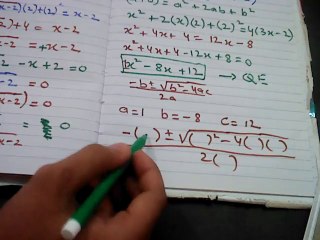 x-2)(2)+(2)² = x-2
)+4 = x-2
= x-2
2 -x+2 = 0
= 0
) = 0
= 0
= a²+2ab+b²
x²+2(x)(2)+(2)² = 4(3x-2)
x²+4x+4 = 12x-8
x²+4x+4-12x+8 = 0
x²-8x+12 → QE
-b±√b²-4ac
2a
a=1 b=-8 c=12
-( ) ± √( )²-4( )( )
2( )